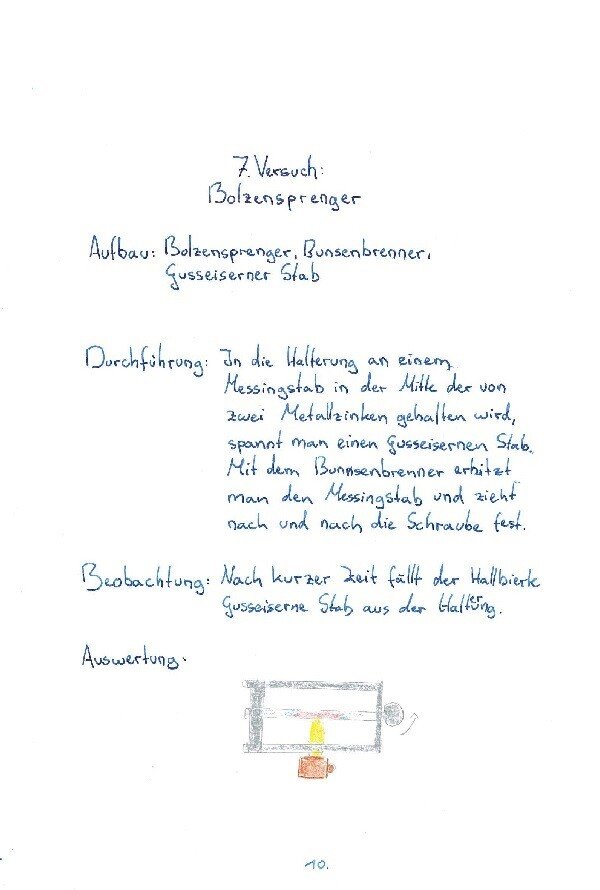 7. Versuch:
Bolzensprenger
Aufbau: Bolzensprenger, Bunsenbrenner,
Gusseiserner Stab
Durchführung: In die Halterung an einem
Messingstab in der Mitte der von
zwei Metallzinken gehalten wird,
spannt man einen Gusseisernen Stab.
Mit dem Bunnsenbrenner erhitzt
man den Messingstab und zieht
nach und nach die Schraube fest.
Beobachtung: Nach kurzer Zeit fällt der Hallbierte
Gusseiserne Stab aus der Halterung.
Auswertung:
10.